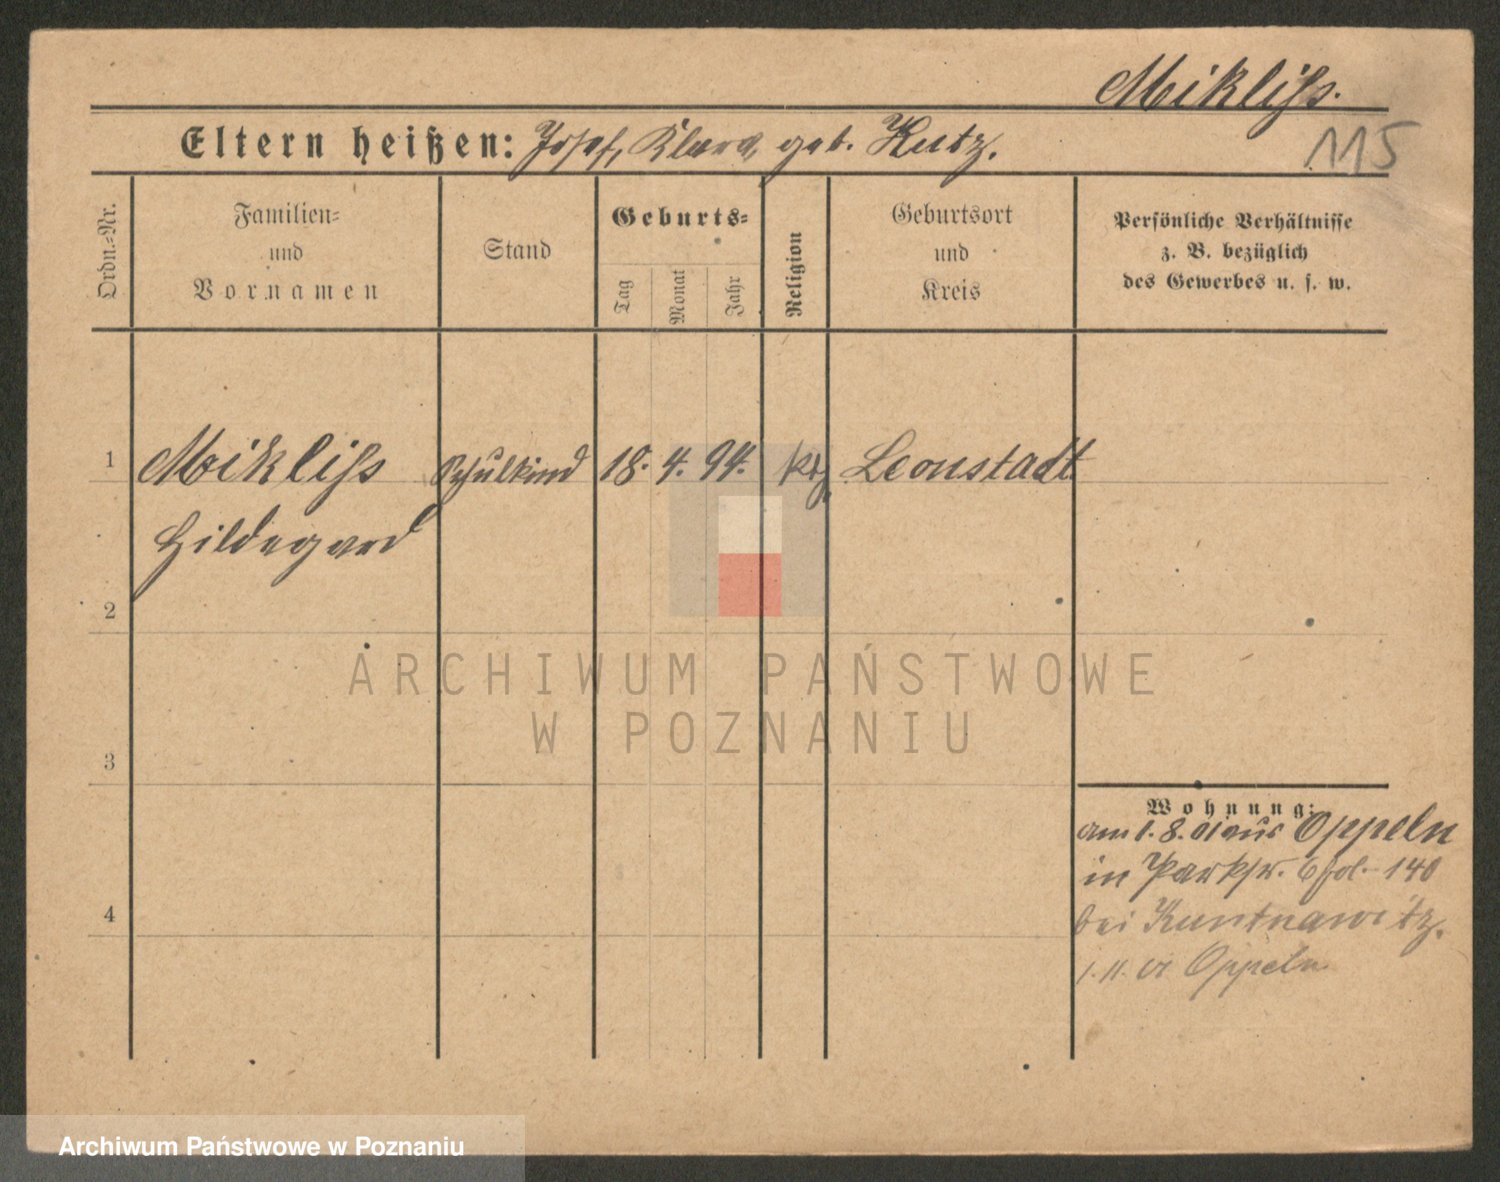 Mikliss.
115
Eltern heißen: Josef, Klara, geb. Kutz.
Ordn.=Nr.
Familien=
und
Vornamen
Stand
Geburts=
Tag
Monat
Jahr
Religion
Geburtsort
und
Kreis
Persönliche Verhältnisse
z. B. bezüglich
des Gewerbes u. s. w.
1 Mikliss Schulkind 18. 4. 94. kth. Leonstadt
Hildegard
2
ARCHIWUM PAŃSTWOWE
W POZNANIU
3
Wohnung:
am 1. 8. 01 aus Oppeln
in Parkstr. 6 fol. 140
4
bei
1. 11. 01 Oppeln
Archiwum Państwowe w Poznaniu